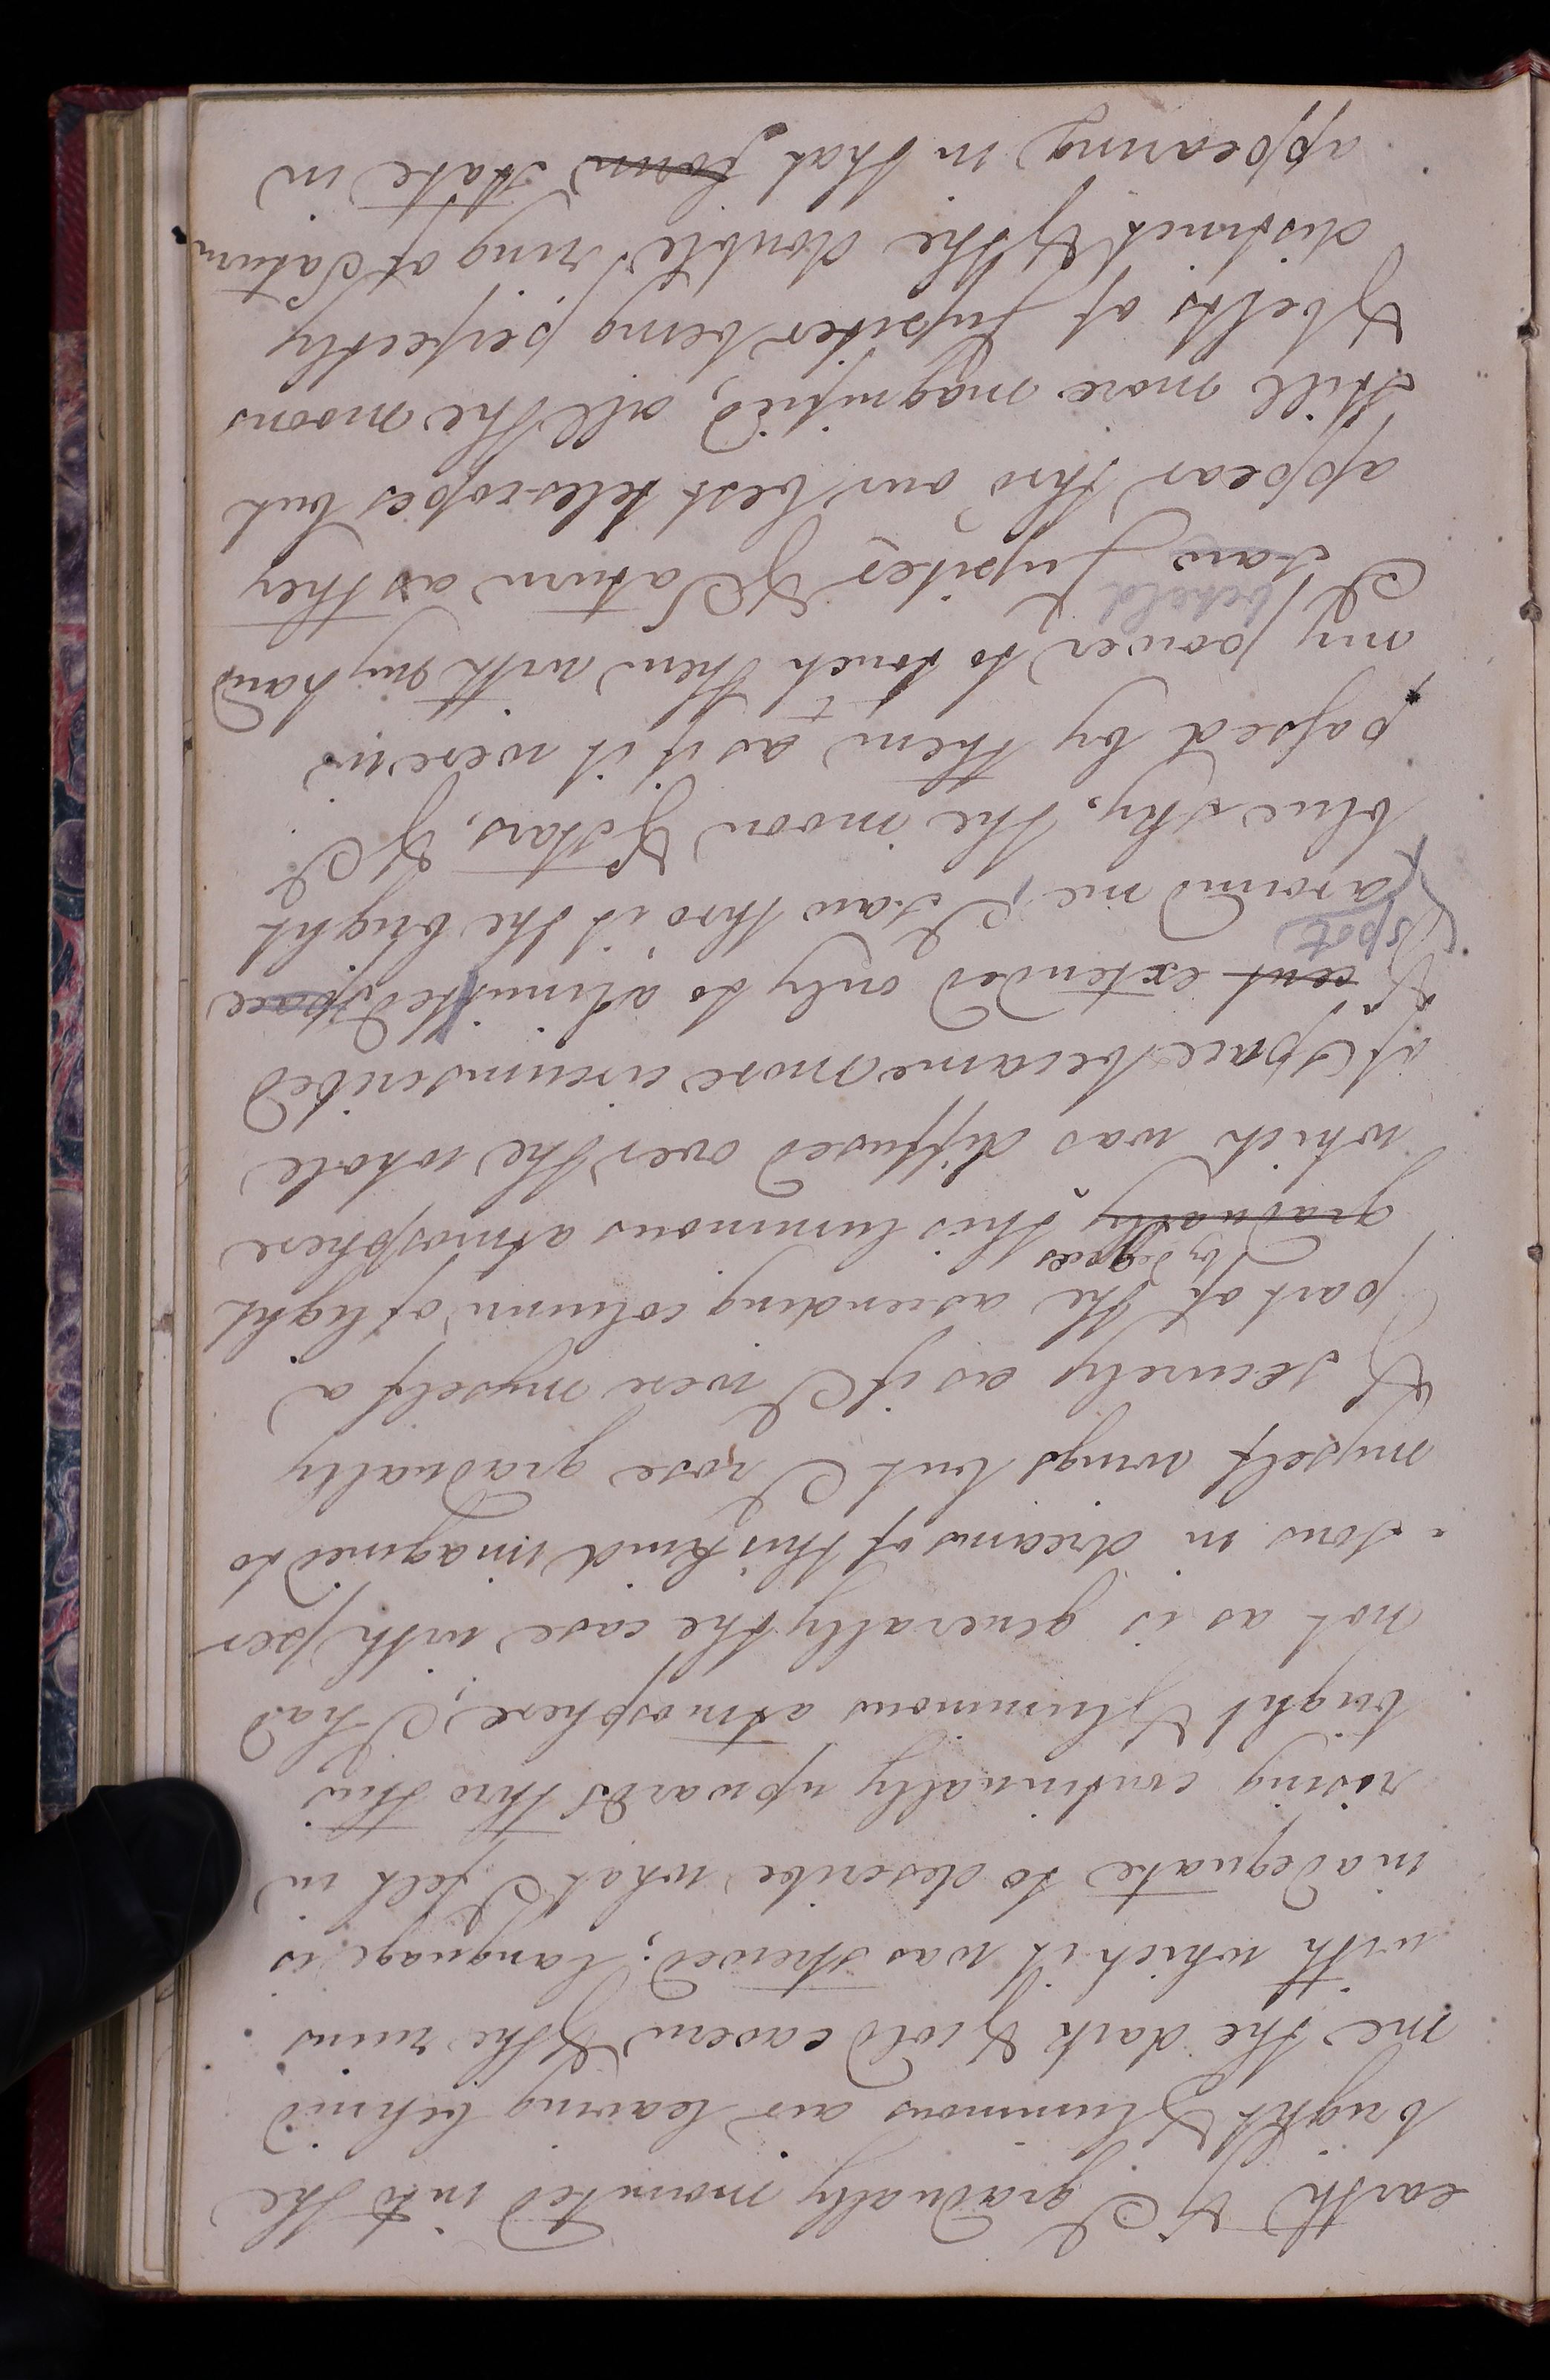 earth & I gradually mounted into the
bright & luminous air leaving behind
me the dark & cold cavern & the ruins
with which it was strewed; language is
inadequate to describe what I felt in
rising continually upwards thro this
bright & luminous atmosphere, I had
not as is generally the case with per
- sons in dreams of this kind imagined to
myself wings but I rose gradually
& securely as if I were myself a
part of the ascending column of light
by degrees
gradually this luminous atmosphere
which was diffused over the whole
of space became more circumscribed
& cent extended only to a limitted space
spot
around me, I saw thro it the bright
blue sky. the moon & stars, & I
passed by them as if it were in
my power to touch them with my hand
beheld
I saw Jupiter & Saturn as they
appear thro our best telescopes but
still more magnified, all the moons
& belts of Jupiter being perfectly
distinct & the double ring of Saturn
appearing in that form state in